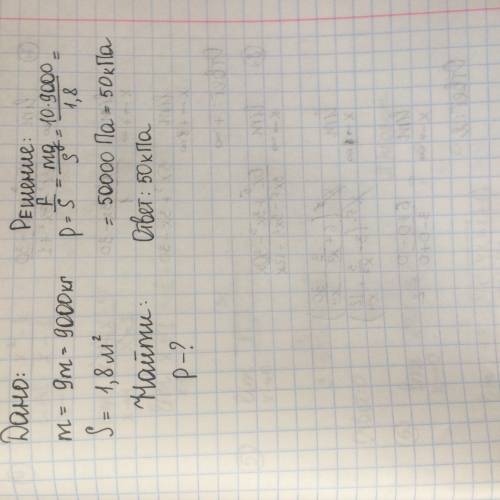 Дано:
m = 9т = 9000кг
S = 1,8 м²
Найти:
р-?
Решение:
p = F/S = mg/S = 10·9000/1,8 =
= 50000 Па = 50кПа
Ответ: 50кПа